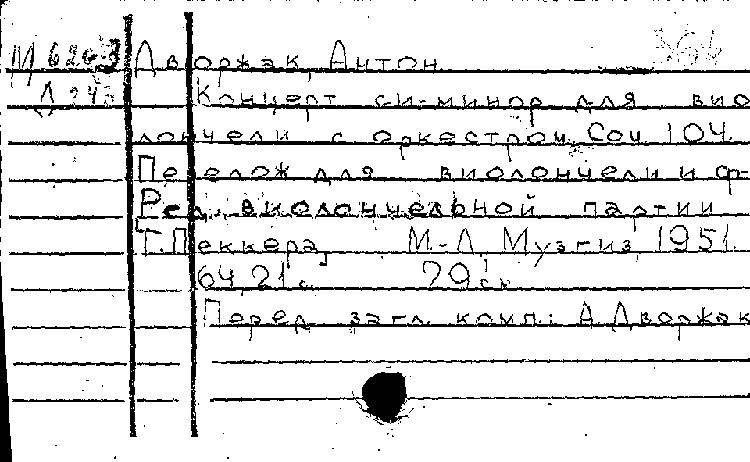 М 6203 Дворжак, Антон
Д 24 Концерт си-минор для вио
лончели с оркестром. Соч. 104.
Перелож. для виолончели и ф-
Ред. виолончельной партии
Т. Пеккера, М.-Л., Музгиз, 1951.
64, 21 с. 29 см
Перед загл. комп.: А. Дворжак